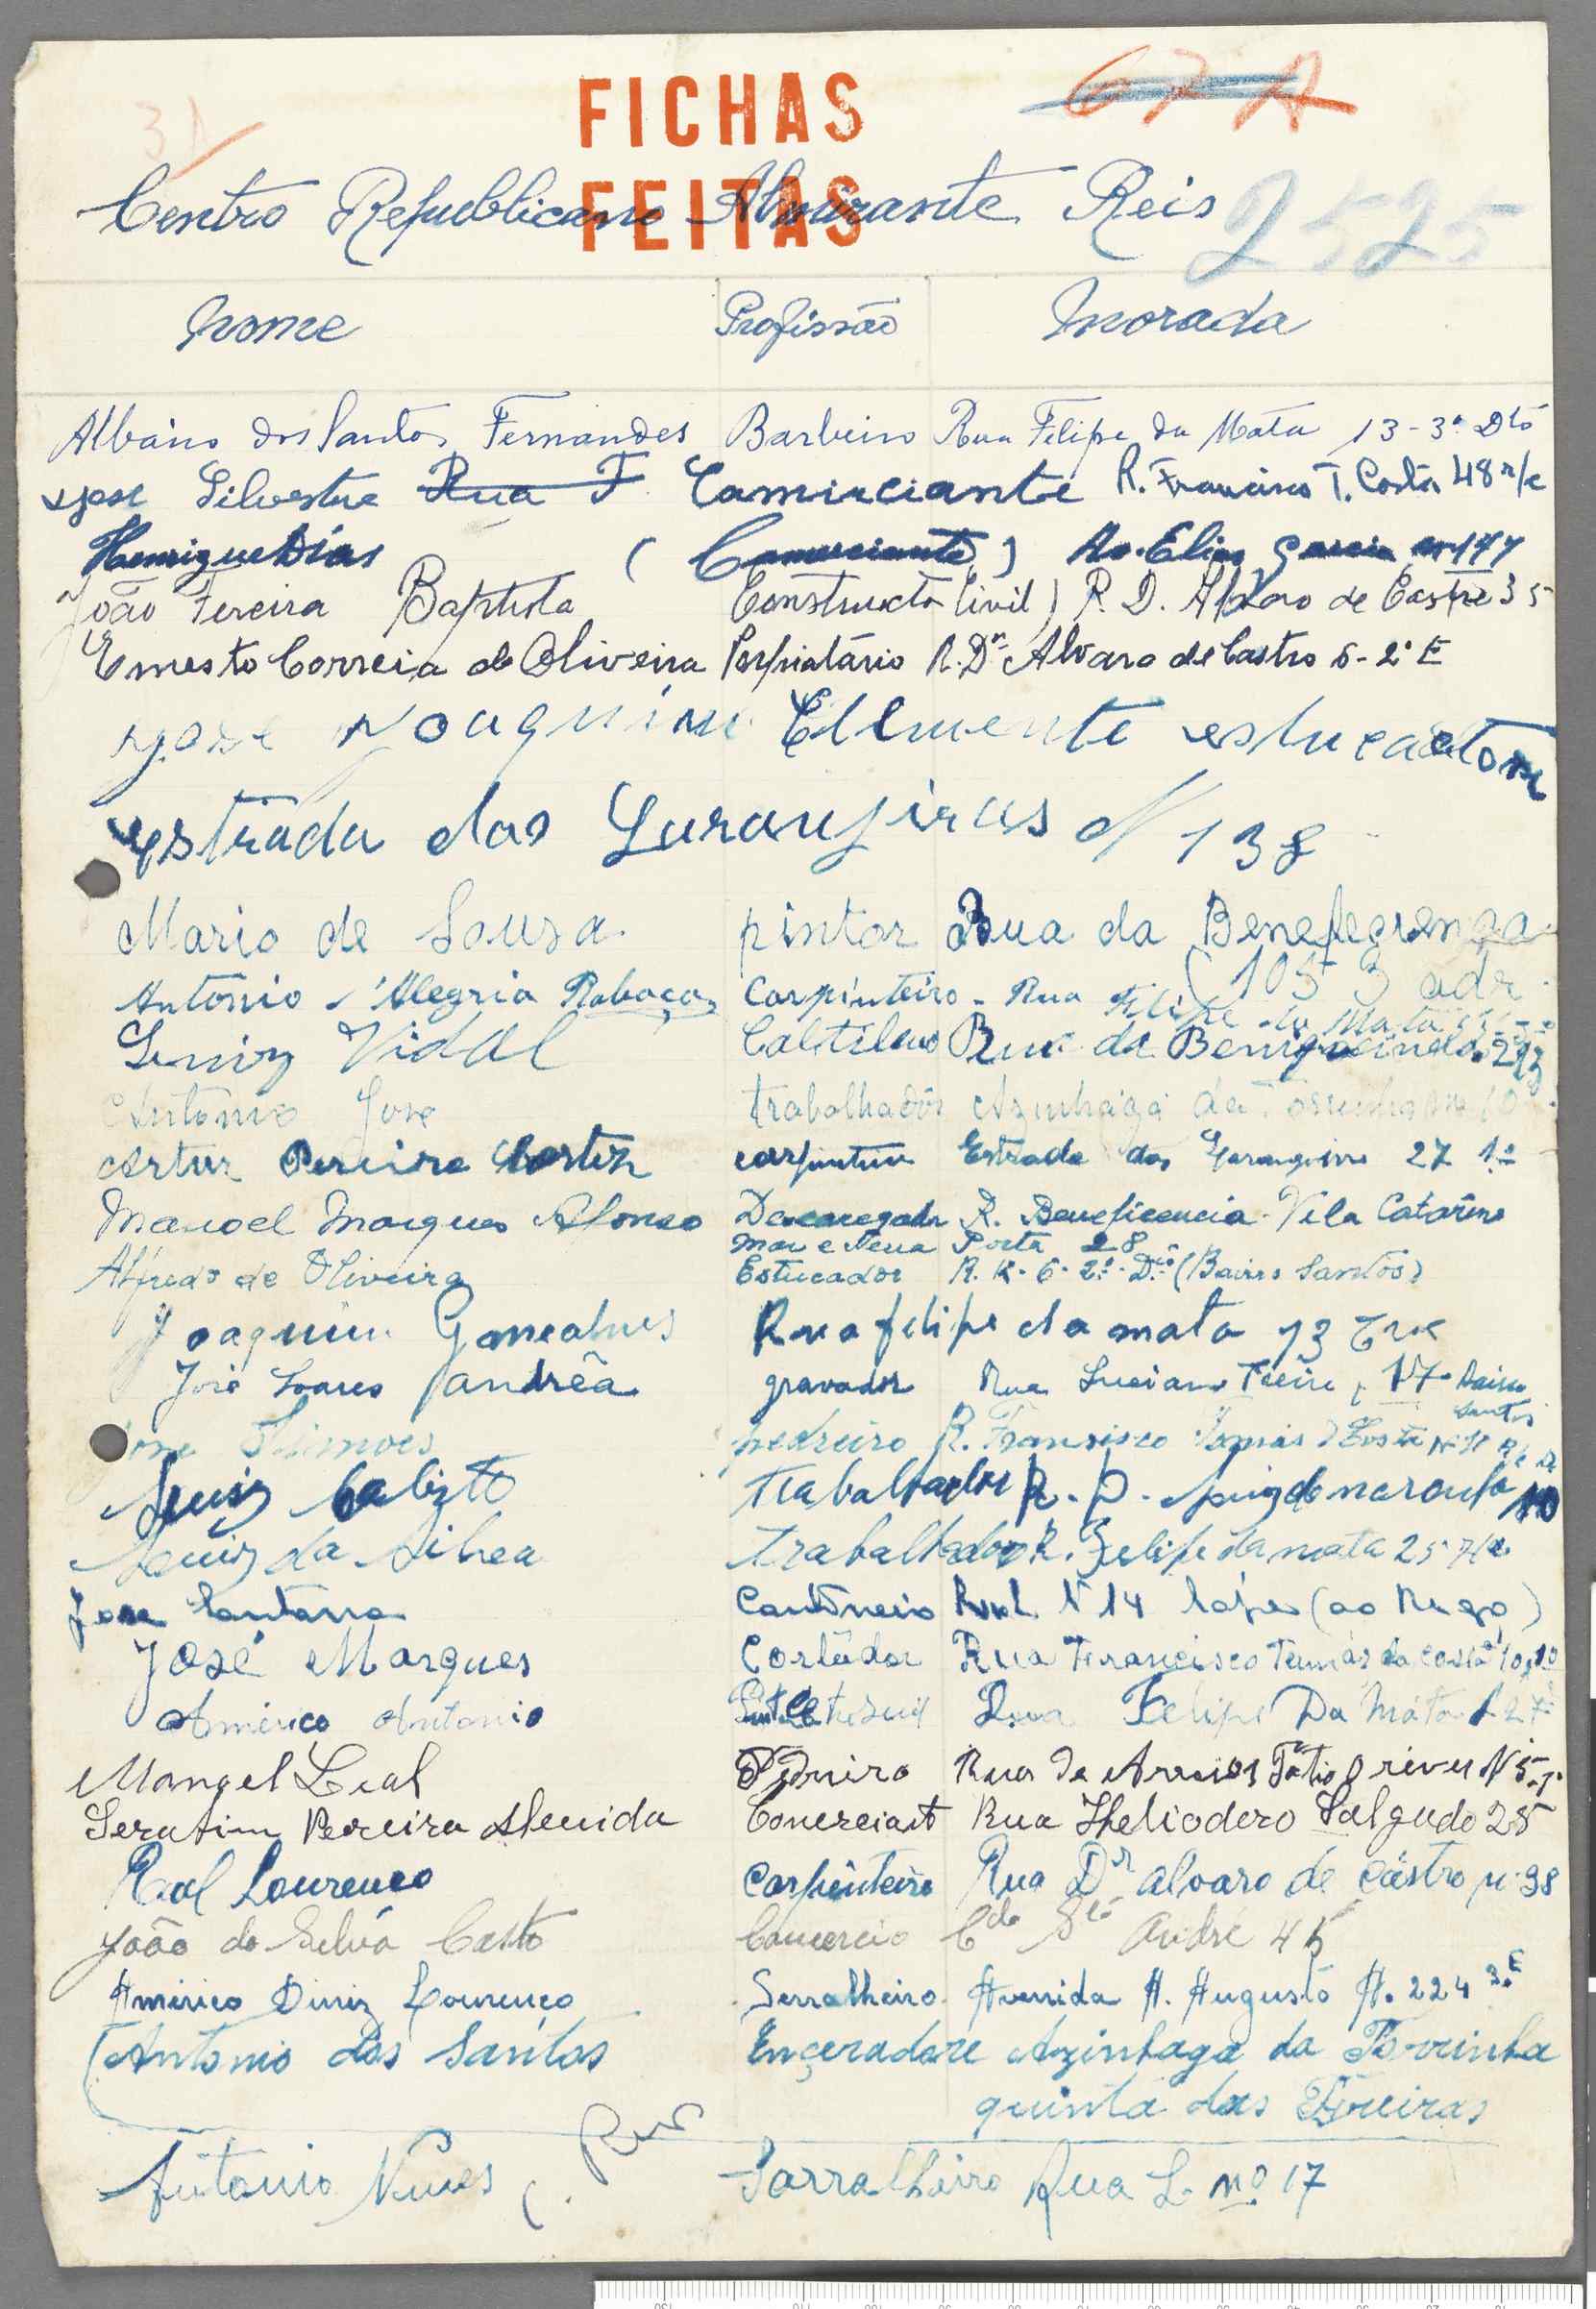 FICHAS
FEITAS
67 A
31
Centro Republicano Almirante Reis
2525
Nome Profissão Morada
Albano dos Santos Fernandes Barbeiro Rua Felipe da Mata 13-3º Dto
Jose Silvestre Rua F. Comirciante R. Francisco T. Costa 48 r/c
Henrique Dias (Comerciante) Av. Elias Garcia
João Pereira Baptista Constructo Civil) R. D. Alvaro de Castro 35
Ernesto Correia de Oliveira R. Dr Alvaro de Castro 6-2º E
Joaquim Clemente
estrada das Laranjiras N 138
Mario de Sousa pintor Rua da
(105 3 adr
Antonio Alegria Rabaça Carpinteiro - Rua Filipe da Mata
Luiz Vidal Rua de
Antonio Jose trabalhadôr Azinhaga da
Artur Pereira Martin carpinteiro Estrada das 27 1º
Manoel Marques Afonso Descaregador R. Beneficencia - Vila Catarina
Mar e Terra Porta 28
Alfredo de Oliveira Estucador R. K-6-2º-Dto (Bairro Santos)
Joaquim Goncalves Rua felipe da mata 73
José Soares Candreã gravador Rua Luciano Freire, 17 Bairro
Santos
Jose Simoes pedreiro R. Francisco Tomas
Luiz Calizto Trabalhador R. D. Luiz de naronha 10
Luiz da Silvea Trabalhador R. Felipe da mata 25
Jose Santana Cantoneio Rua L Nº 14 (ao Rego)
José Marques Cortador Rua Francisco Tumás da costa 10
Americo Antonio Rua Felipe Da Mata 27
Manuel Leal Rua de Arroios Nº 5
Serafim Pereira Almeida Comerciant Rua Heliodero Salgado 25
Raol Lourenco Carpinteiro Rua Dr alvaro de Castro nº 38
João da Selva Comercio Cda Sto André 45
Amirico Diniz Lourenco Serralheiro Avenida A. Augusto A. 224 3º E
Antonio dos Santos Ençeradore Azinhaga da Torrinha
quinta das
Antonio Nunes Rua Sarralheiro Rua L. nº 17